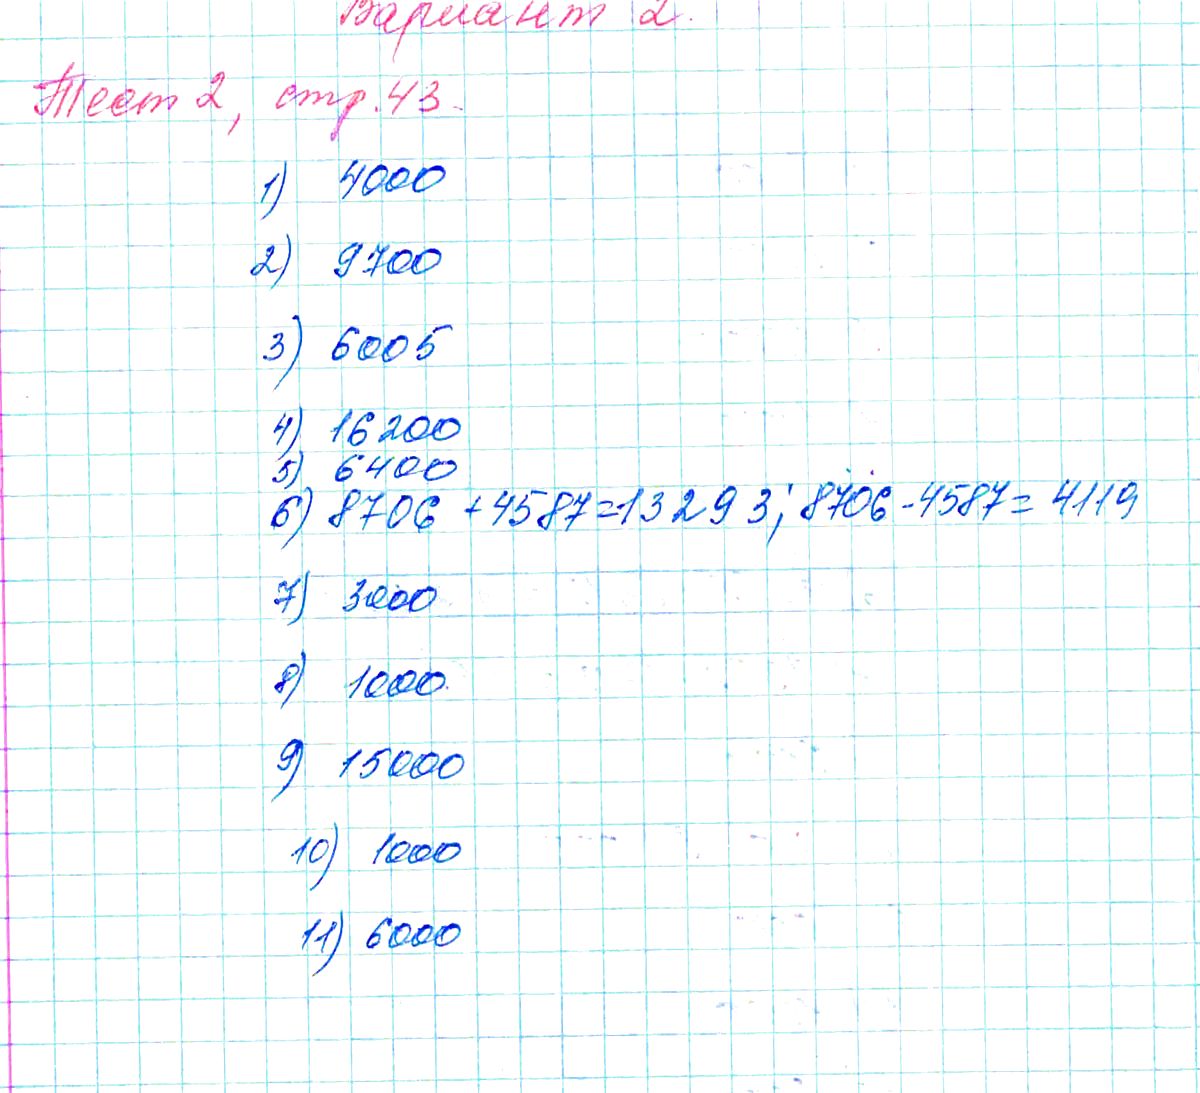 Вариант 2.
Тест 2, стр. 43.
1) 4000
2) 9700
3) 6005
4) 16200
5) 6400
6) 8706 + 4587 = 13293; 8706 - 4587 = 4119
7) 3000
8) 1000
9) 15000
10) 1000
11) 6000